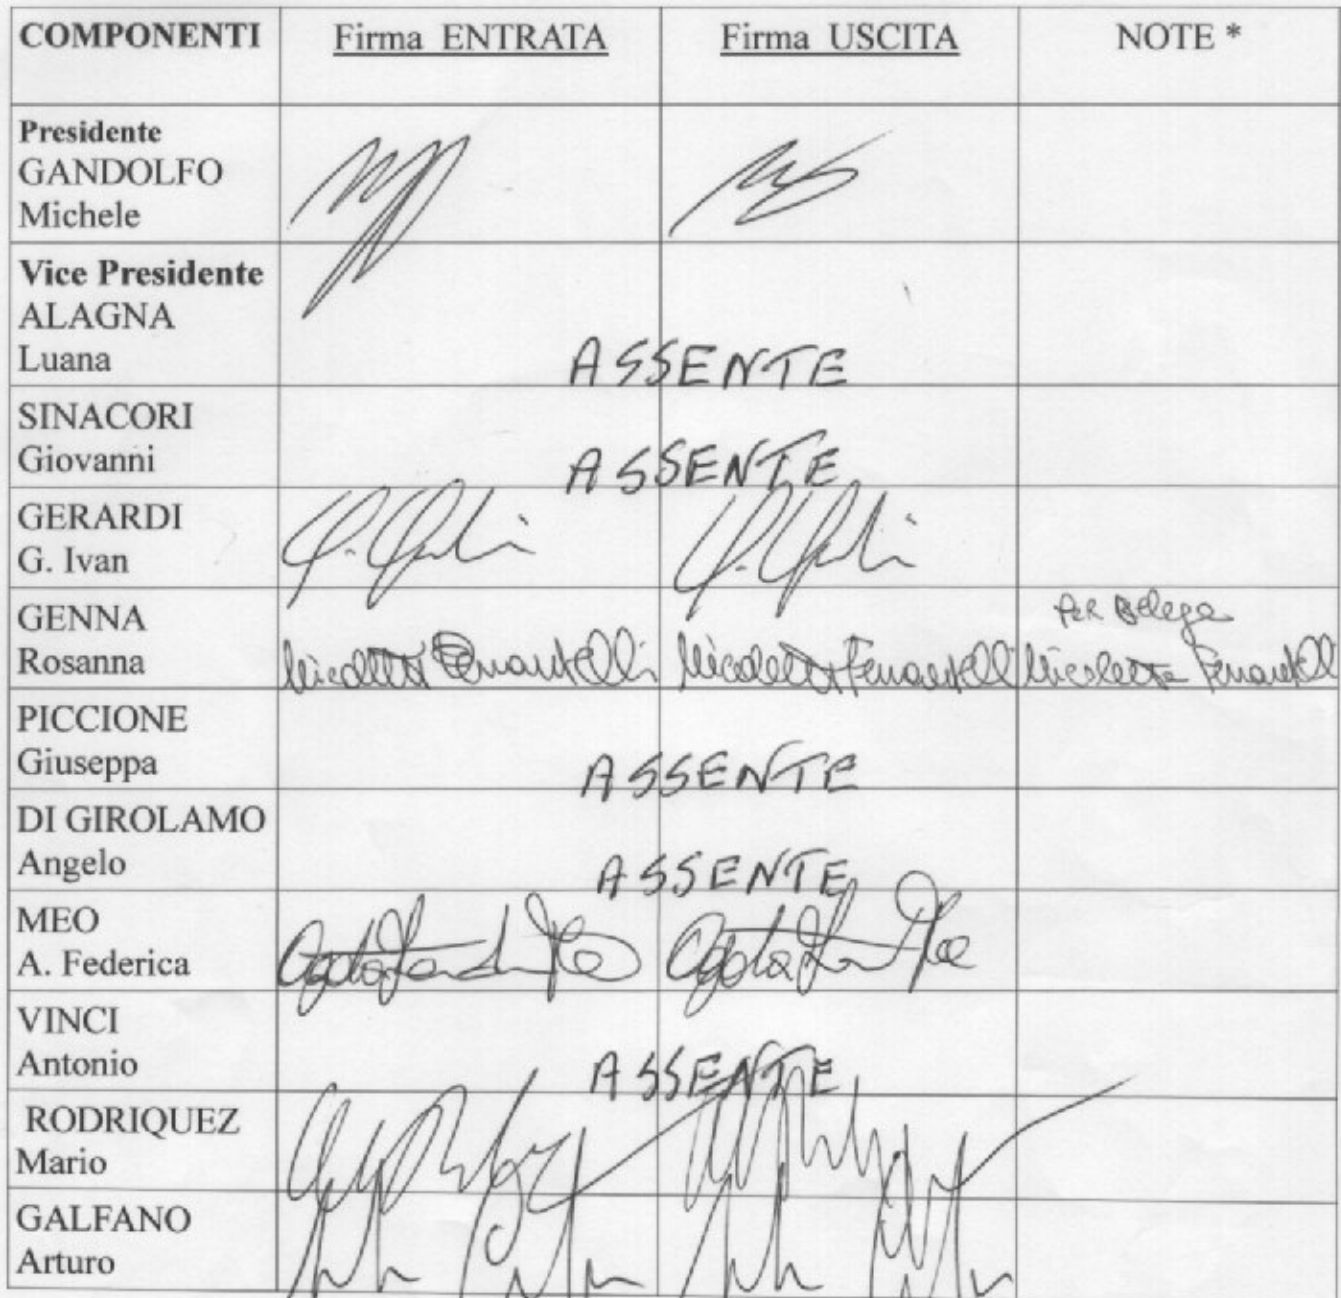 COMPONENTI Firma ENTRATA Firma USCITA NOTE *
Presidente
GANDOLFO
Michele
Vice Presidente
ALAGNA
Luana ASSENTE
SINACORI
Giovanni ASSENTE
GERARDI
G. Ivan
GENNA Per Delega
Rosanna Nicoletta Ferrantelli Nicoletta Ferrantelli Nicoletta Ferrantelli
PICCIONE
Giuseppa ASSENTE
DI GIROLAMO
Angelo ASSENTE
MEO
A. Federica
VINCI
Antonio ASSENTE
RODRIQUEZ
Mario
GALFANO
Arturo